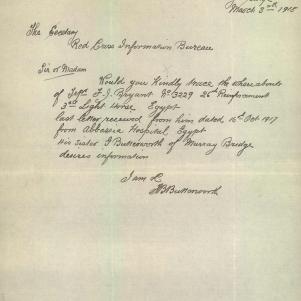 March 3rd 1918
The Secretary
Red Cross Information Bureau
Sir or Madam
Would you Kindly trace the whereabouts
of F. J. Bryant No 3229 26th Reinforcement
3rd Light Horse Egypt
last letter received from him dated 16th Oct 1917
from Abbassia Hospital, Egypt
His Sister J Buttsworth of Murray Bridge
desires information
I am &c
Buttsworth